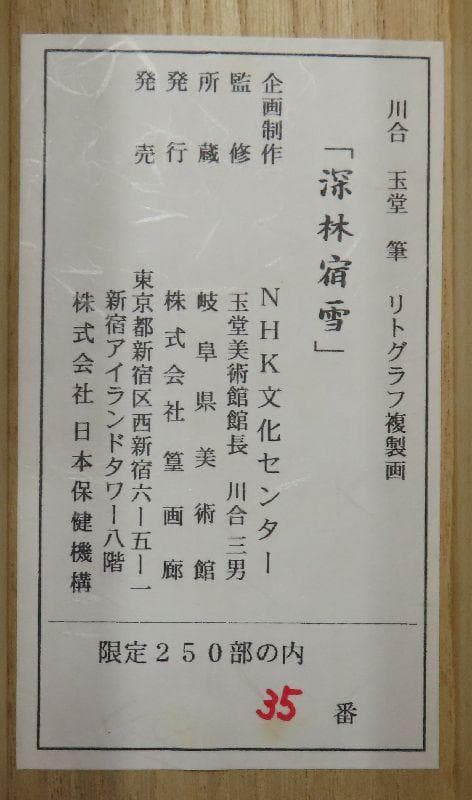 川合 玉堂 筆 リトグラフ複製画
「深林宿雪」
企画制作 NHK文化センター
監修 玉堂美術館館長 川合三男
所蔵 岐阜県美術館
発行 株式会社篁画廊
発売 東京都新宿区西新宿六ー五ー一
新宿アイランドタワー八階
株式会社 日本保健機構
限定250部の内
35 番